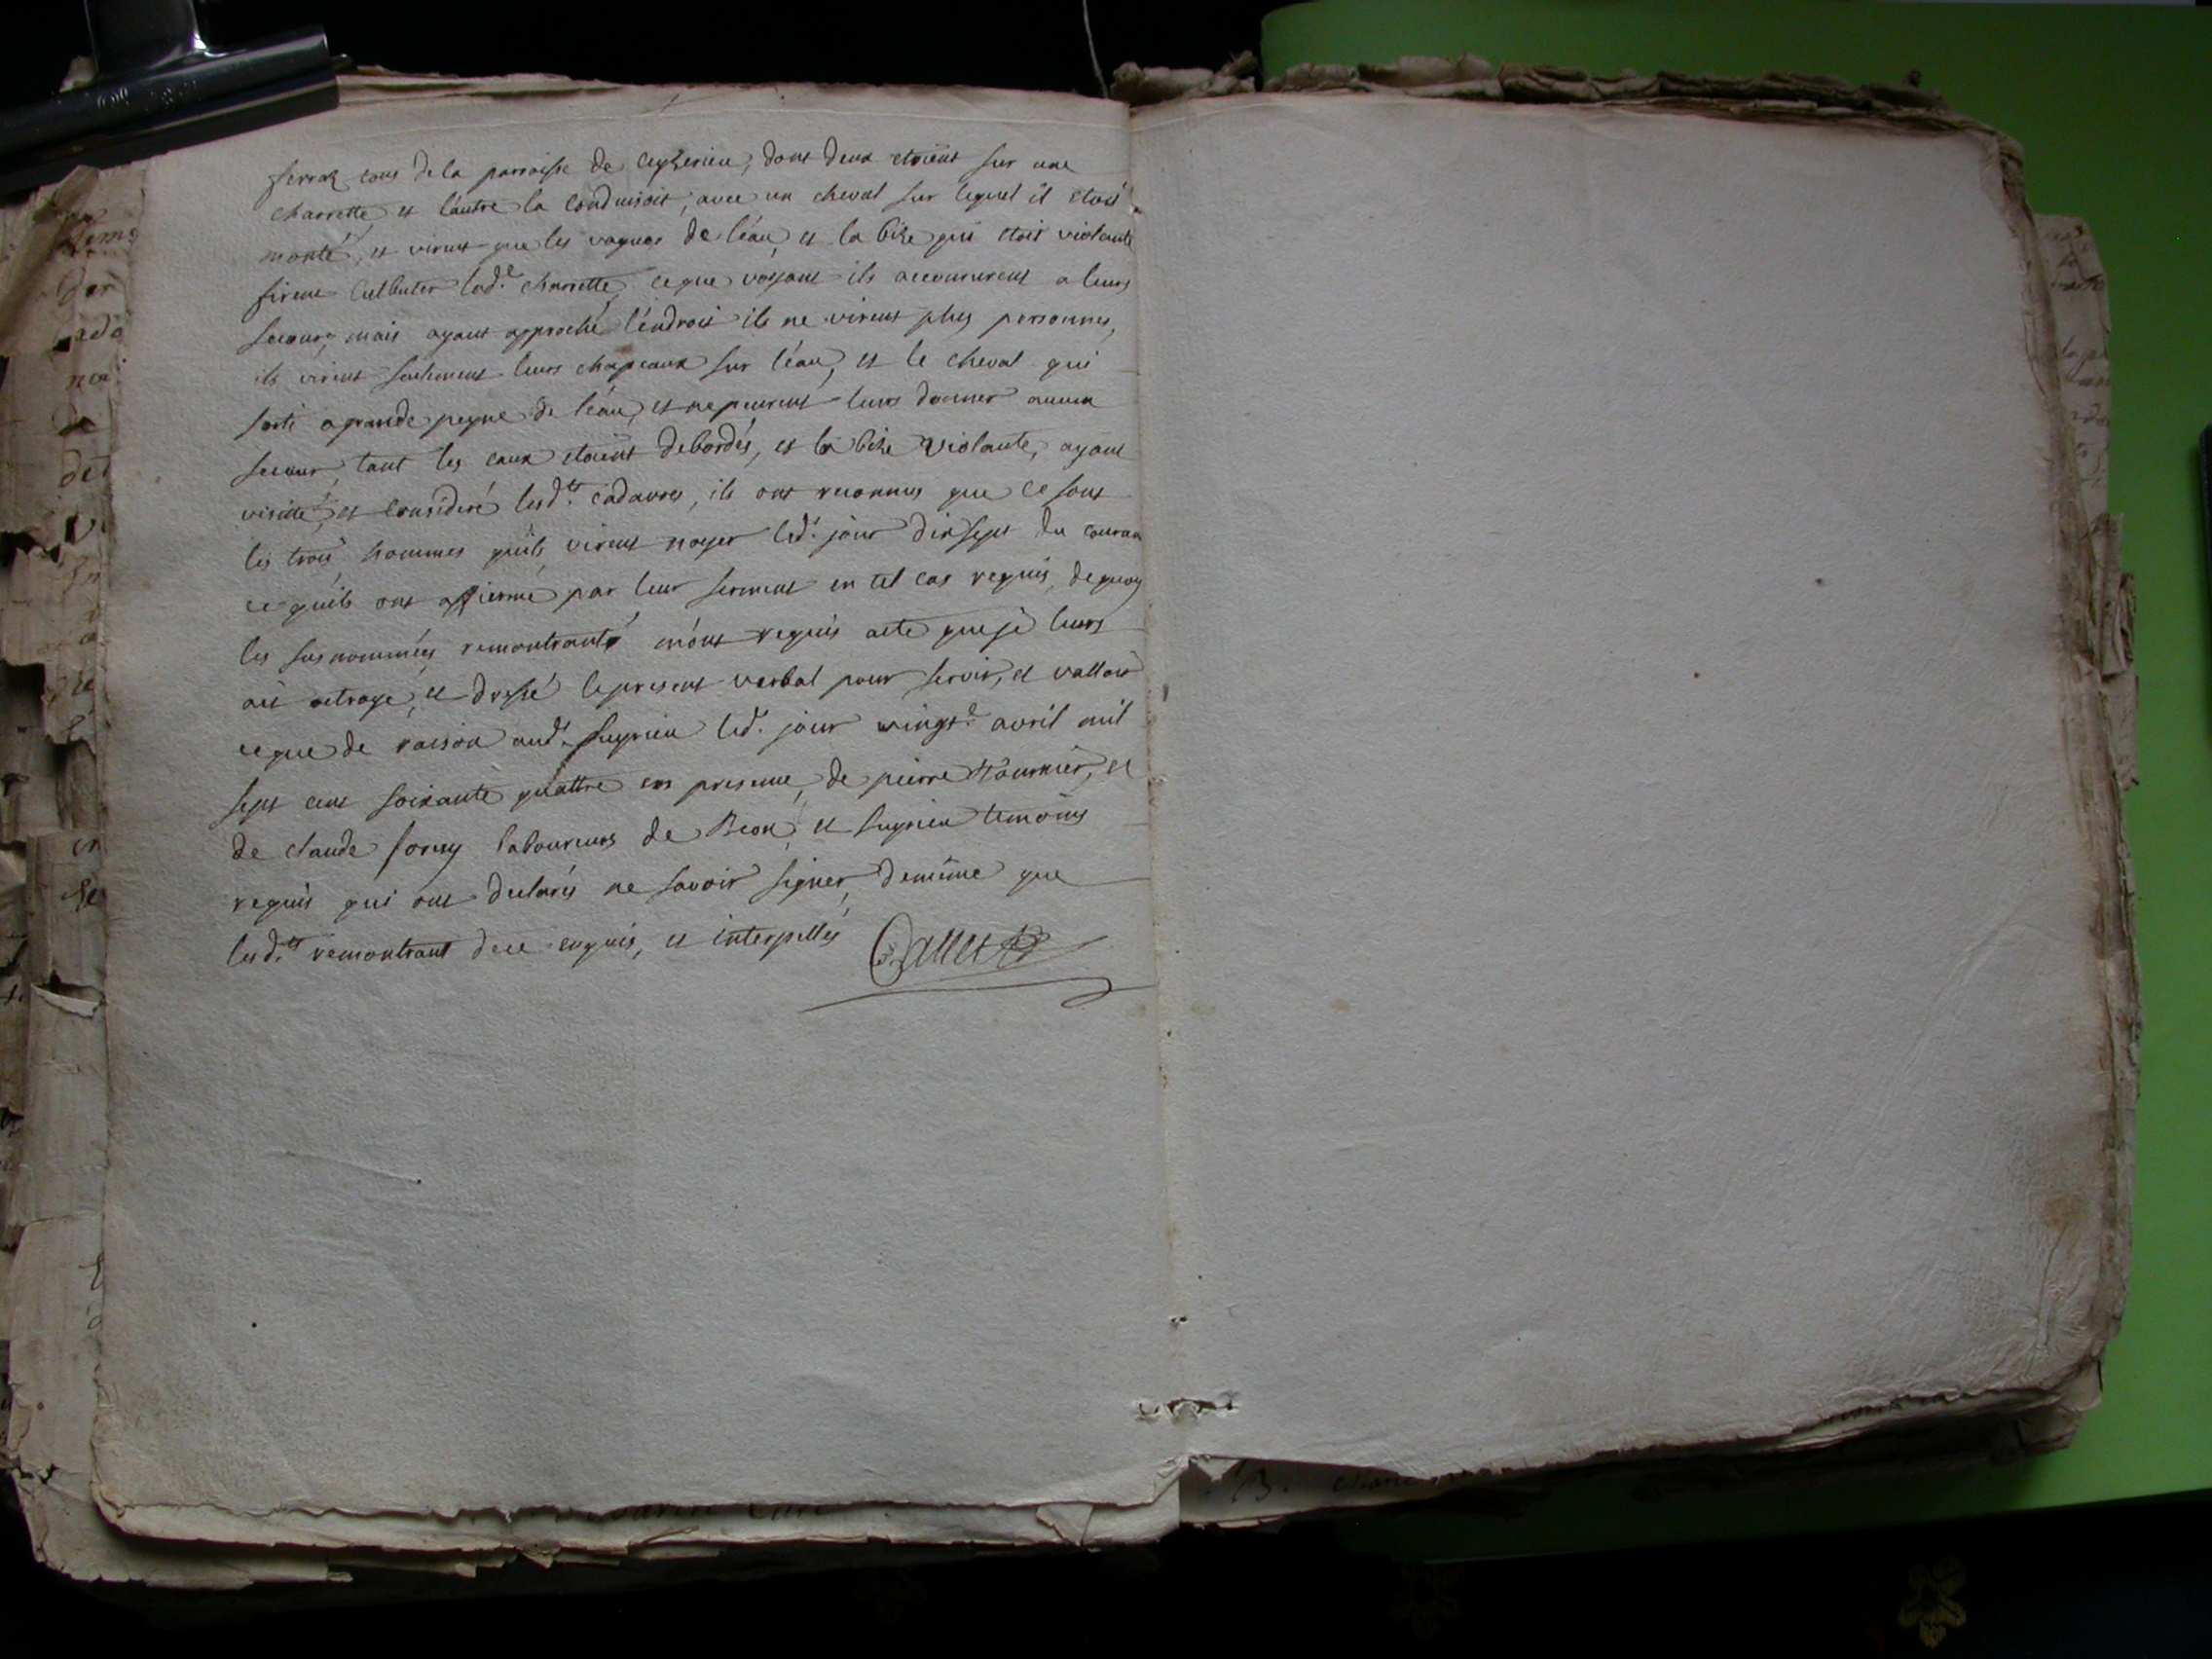 ferraz tous de la parroisse de Ceyzerieu, dont deux etoient sur une
charrette et l'autre la conduisoit, avec un cheval sur lequel il etoit
monté, et virent que les vagues de l'eau, et la bize qui etoit violante
firent culbuter lad.e charrette, ce que voyant ils accoururent a leurs
secours, mais ayant approché l'endroit ils ne virent plus personnes,
ils virent seulement leurs chapeaux sur l'eau, et le cheval qui
sorti a grande peyne de l'eau, et ne peurent leurs donner aucun
secour, tant les eaux etoient debordés, et la bize violante, ayant
visitté, et consideré lesd.ts cadavres, ils ont reconnus que ce sont
les trois hommes qu'ils virent noyer led.t jour dix sept du couran
ce qu'ils ont affirmé par leur serment en tel cas requis, de quoy
les susnommés remontrants m'ont requis acte que je leurs
ait octroyé, et dressé le present verbal pour servir, et valloir
ce que de raison aud.t Luyrieu led.t jour vingt.e avril mil
sept cent soixante quattre en presence, de pierre fournier, et
de claude sorny laboureurs de Beon, et Luyrieu temoins
requis qui ont declarés ne savoir signer, de même que
lesd.ts remontrant de ce enquis, et interpellés